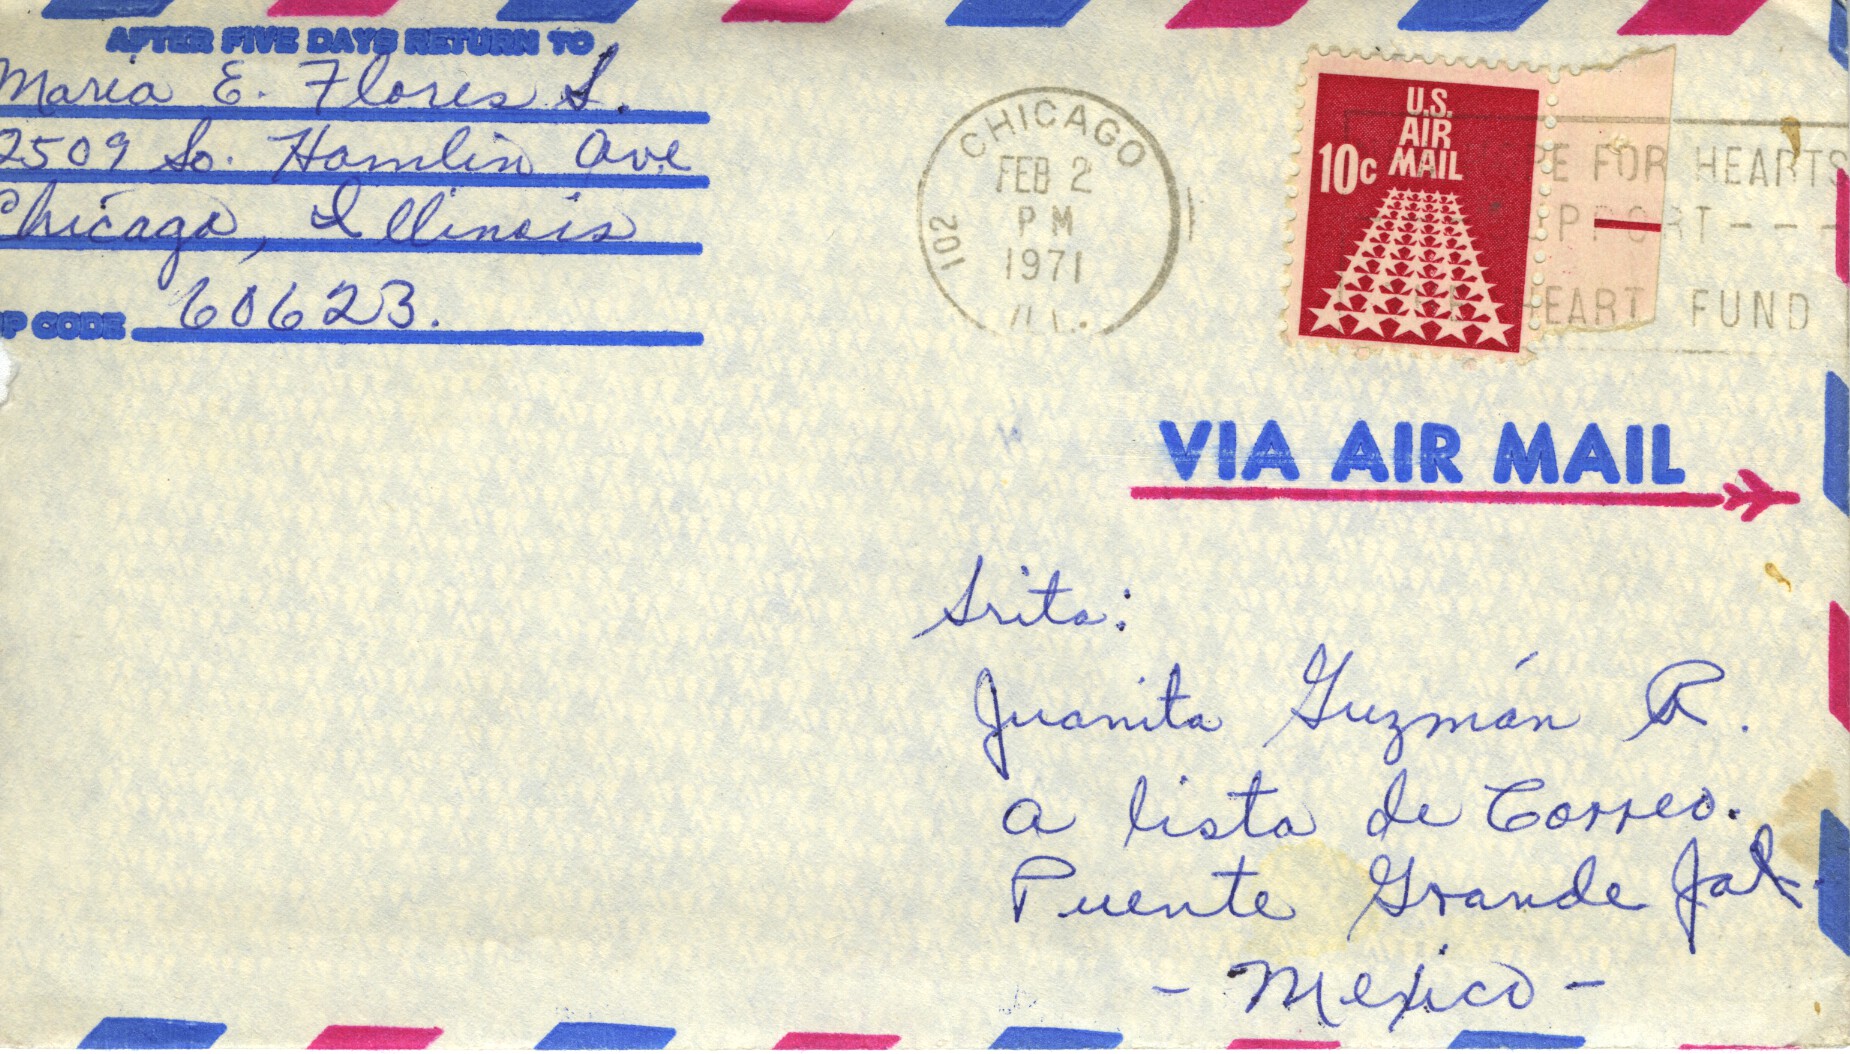 AFTER FIVE DAYS RETURN TO
Maria E. Flores S.
2509 So. Hamlin Ave
Chicago, Illinois
ZIP CODE 60623.
CHICAGO
FEB 2
PM
1971
102
ILL.
U.S.
AIR
MAIL
10c
FOR HEARTS
HEART FUND
VIA AIR MAIL
Srita:
Juanita Guzmán R.
a lista de Correo.
Puente Grande Jal.
- Mexico -